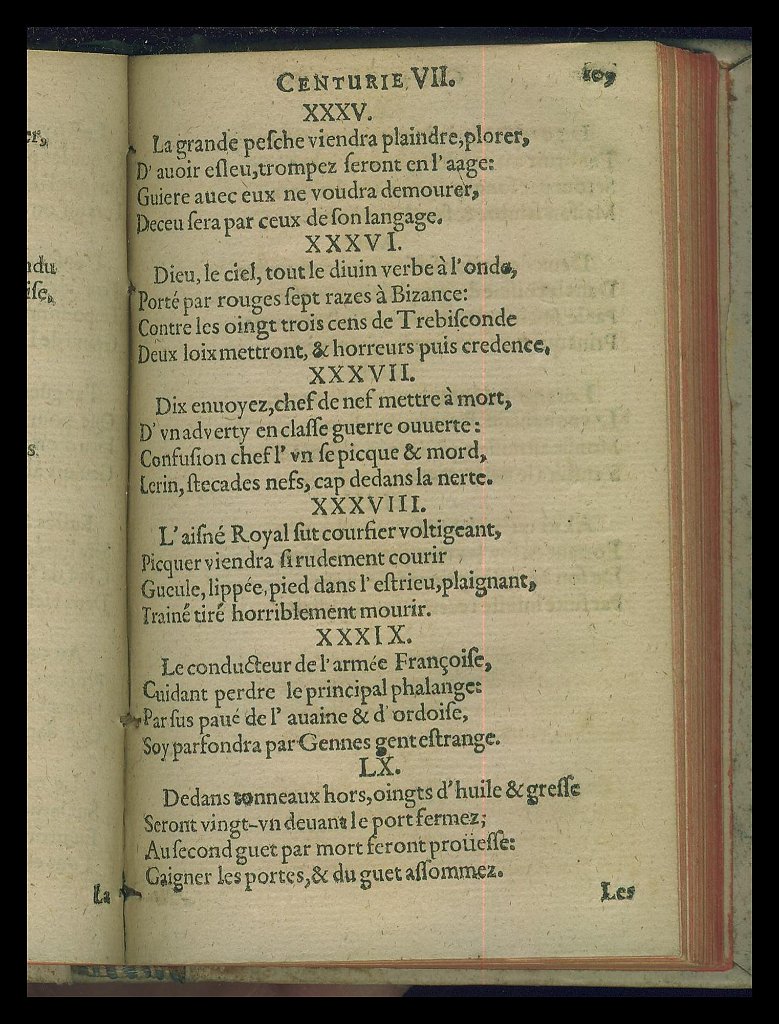 CENTURIE VII. 109
XXXV.
La grande peſche viendra plaindre, plorer,
D'auoir eſleu, trompez ſeront en l'aage:
Guiere auec eux ne voudra demourer,
Deceu ſera par ceux de ſon langage.
XXXVI.
Dieu, le ciel, tout le diuin verbe à l'onde,
Porté par rouges ſept razes à Bizance:
Contre les oingt trois cens de Trebiſconde
Deux loix mettront, & horreurs puis credence,
XXXVII.
Dix enuoyez, chef de nef mettre à mort,
D'vn adverty en claſſe guerre ouuerte:
Confuſion chef l'vn ſe picque & mord,
Lerin, ſtecades nefs, cap dedans la nerte.
XXXVIII.
L'aiſné Royal ſut courſier voltigeant,
Picquer viendra ſi rudement courir
Gueule, lippée, pied dans l'eſtrieu, plaignant,
Trainé tiré horriblement mourir.
XXXIX.
Le conducteur de l'armée Françoiſe,
Cuidant perdre le principal phalange:
Par ſus paué de l'auaine & d'ordoiſe,
Soy parfondra par Gennes gent eſtrange.
LX.
Dedans tonneaux hors, oingts d'huile & greſſe
Seront vingt-vn deuant le port fermez;
Au ſecond guet par mort feront proüeſſe:
Gaigner les portes, & du guet aſſommez.
Les
er,
ndu
iſe,
s
La